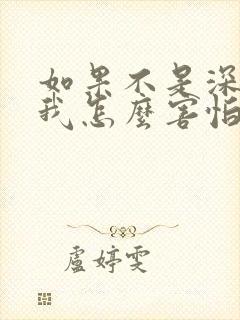 如果不是深
我怎麼害怕
盧婷雯